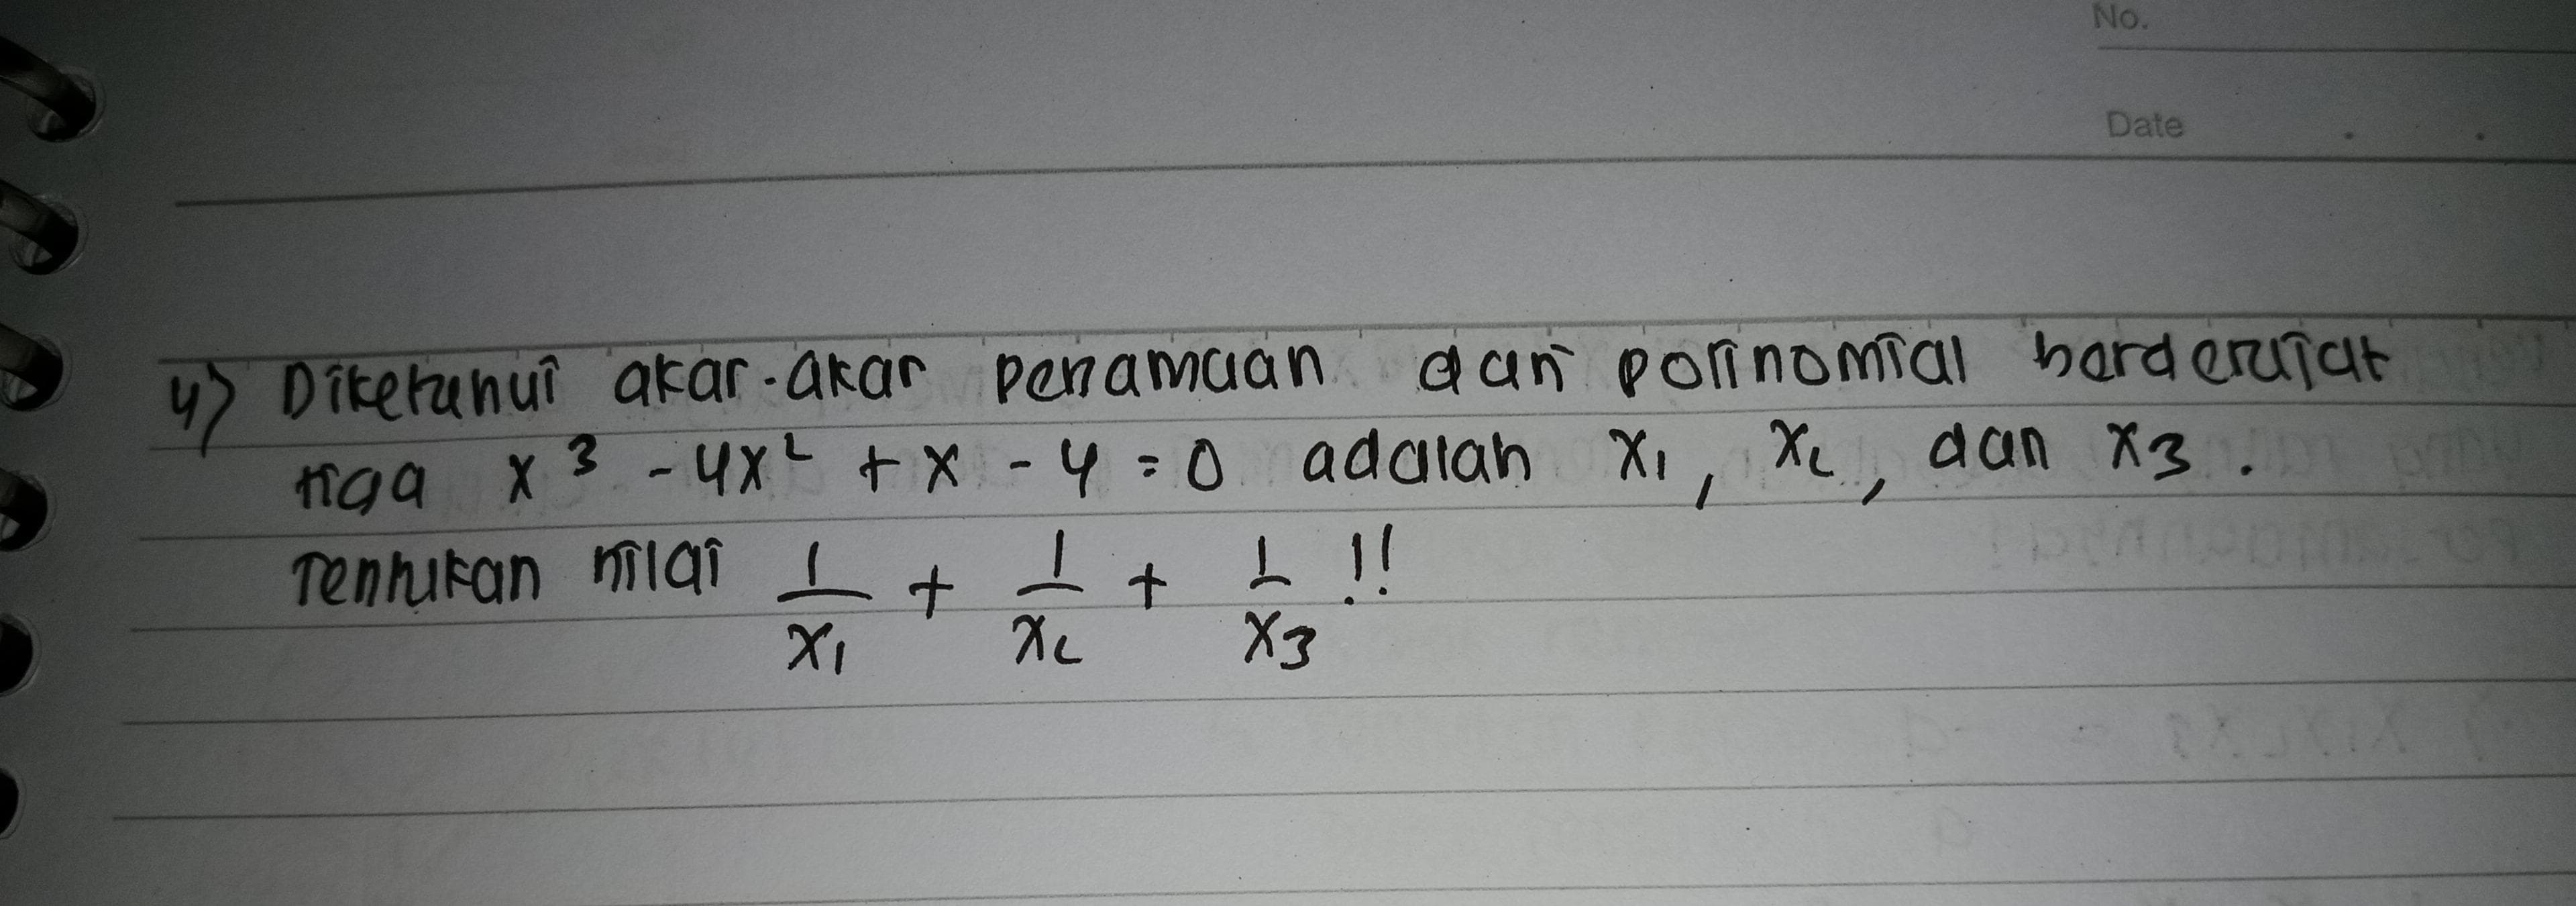 No.
Date . .
4) Diketahui akar-akar persamaan dari polinomial berderajat
tiga x³ - 4x² + x - 4 = 0 adalah x₁, x₂, dan x₃.
Tentukan nilai 1/x₁ + 1/x₂ + 1/x₃ !!